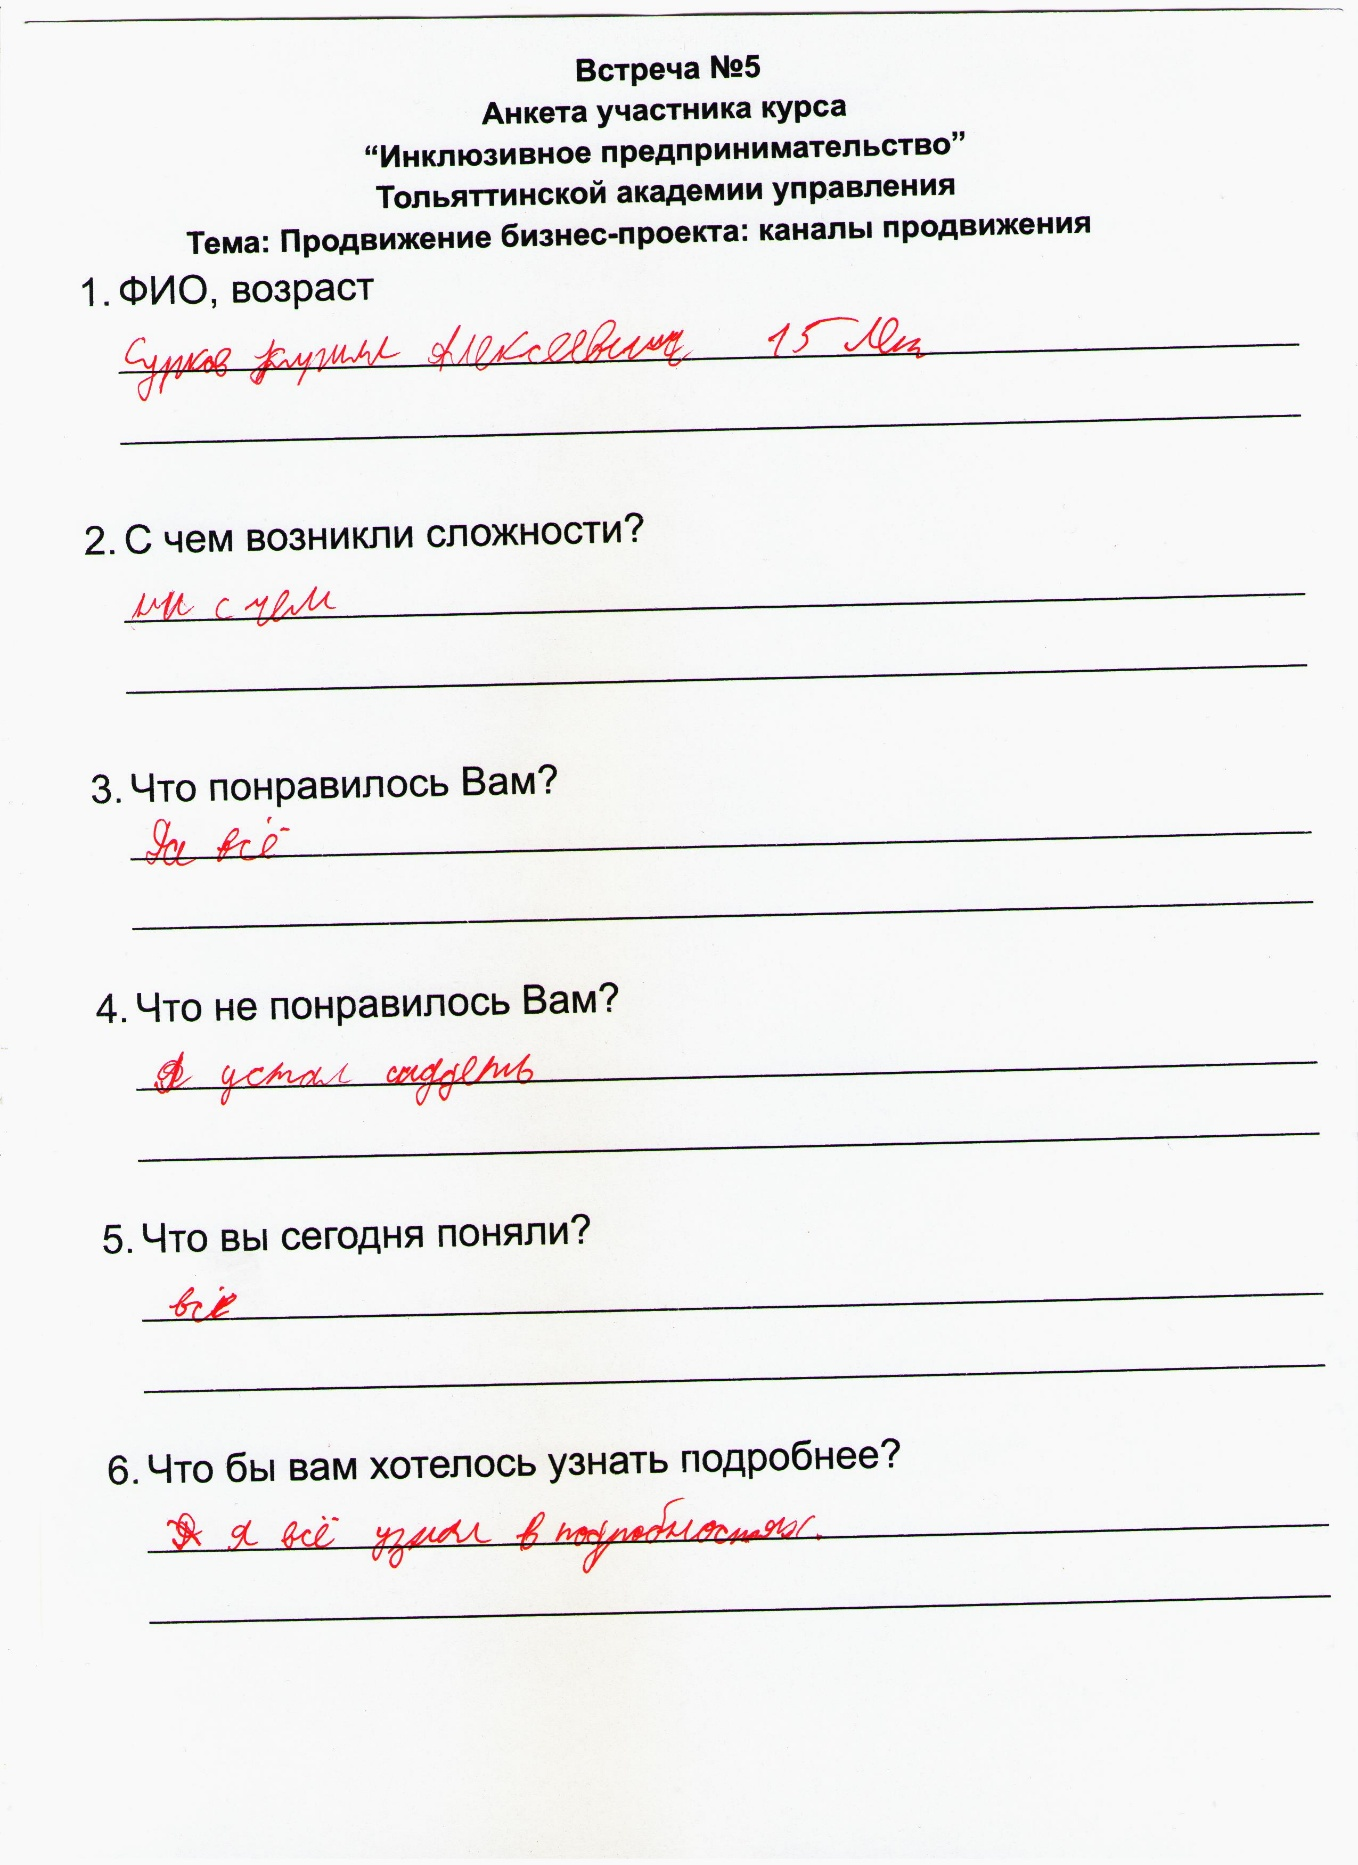 Встреча №5
Анкета участника курса
“Инклюзивное предпринимательство”
Тольяттинской академии управления
Тема: Продвижение бизнес-проекта: каналы продвижения
1. ФИО, возраст
Сурков Алексеевич 15 лет
2. С чем возникли сложности?
ни с чем
3. Что понравилось Вам?
Да всё
4. Что не понравилось Вам?
Я устал сиддеть
5. Что вы сегодня поняли?
всё
6. Что бы вам хотелось узнать подробнее?
я всё узнал в подробностях.